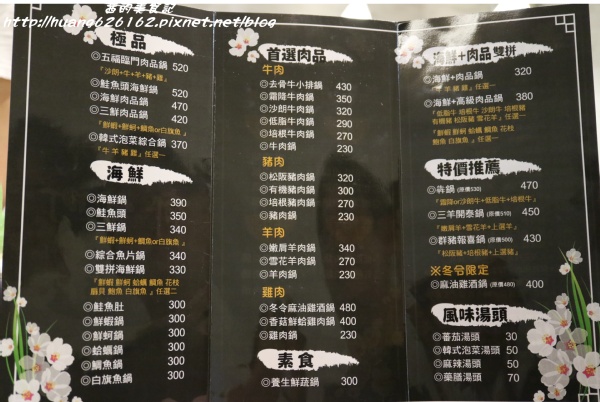 茜的素食記
http://huang626162.pixnet.net/blog
極品
◎五福臨門肉品鍋 520
『沙朗+牛+羊+豬+雞』
◎鮭魚頭海鮮鍋 520
◎海鮮肉品鍋 470
◎三鮮肉品鍋 420
『鮮蝦+鮮蚵+鯛魚or白旗魚』
◎韓式泡菜綜合鍋 370
『牛 羊 豬 雞』任選一
海鮮
◎海鮮鍋 390
◎鮭魚頭 350
◎三鮮鍋 340
『鮮蝦+鮮蚵+鯛魚or白旗魚』
◎綜合魚片鍋 340
◎雙拼海鮮鍋 330
『鮮蝦 鮮蚵 蛤蠣 鯛魚 花枝
扇貝 鮑魚 白旗魚』任選二
◎鮭魚肚 300
◎鮮蝦鍋 300
◎鮮蚵鍋 300
◎蛤蠣鍋 300
◎鯛魚鍋 300
◎白旗魚鍋 300
首選肉品
牛肉
◎去骨牛小排鍋 430
◎霜降牛肉鍋 350
◎沙朗牛肉鍋 320
◎低脂牛肉鍋 290
◎培根牛肉鍋 270
◎牛肉鍋 230
豬肉
◎松阪豬肉鍋 320
◎有機豬肉鍋 300
◎培根豬肉鍋 270
◎豬肉鍋 230
羊肉
◎嫩肩羊肉鍋 340
◎雪花羊肉鍋 270
◎羊肉鍋 230
雞肉
◎冬令麻油雞酒鍋 480
◎香菇鮮蛤雞肉鍋 300
◎雞肉鍋 230
素食
◎養生鮮蔬鍋 300
海鮮+肉品雙拼
◎海鮮+肉品鍋 320
『牛 羊 豬 雞』任選一
◎海鮮+高級肉品鍋 380
『低脂牛 培根牛 沙朗牛 培根豬
有機豬 松阪豬 雪花羊』任選一
『鮮蝦 鮮蚵 蛤蠣 鯛魚 花枝
鮑魚 白旗魚』任選一
特價推薦
◎犇鍋(原價530) 470
『霜降or沙朗牛+低脂牛+培根牛』
◎三羊開泰鍋(原價510) 450
『嫩肩羊+雪花羊+上選羊』
◎群豬報喜鍋(原價500) 430
『松阪豬+培根豬+上選豬』
※冬令限定
◎麻油雞酒鍋(原價480) 400
風味湯頭
◎蕃茄湯頭 30
◎韓式泡菜湯頭 50
◎麻辣湯頭 50
◎藥膳湯頭 70